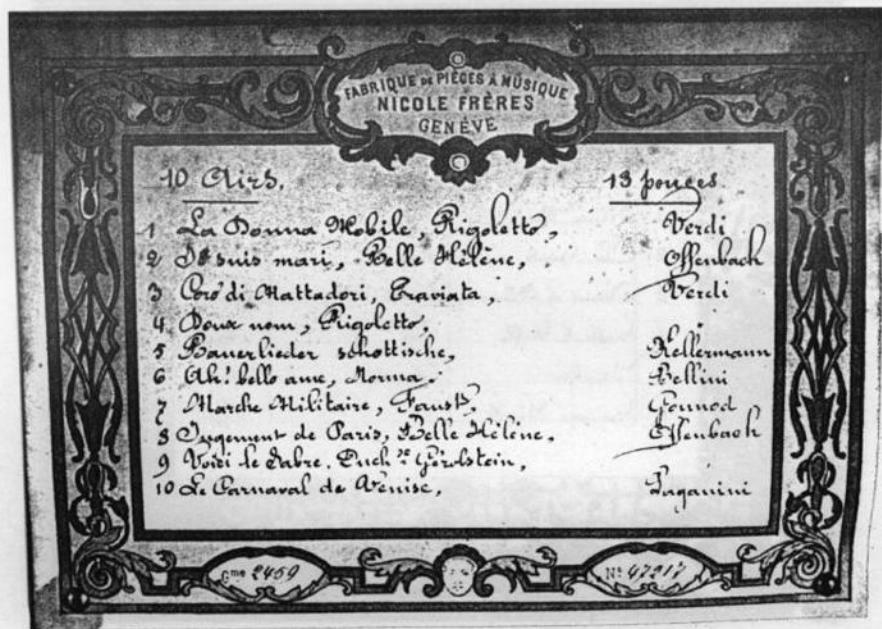 FABRIQUE DE PIÈCES A MUSIQUE
NICOLE FRÈRES
GENÈVE
10 Airs. 13 pouces
1 La Donna Mobile, Rigoletto, Verdi
2 Je suis mari, Belle Hélène, Offenbach
3 Coro di Mattadori, Traviata, Verdi
4 Doux nom, Rigoletto,
5 Bauerlieder schottische, Kellermann
6 Ah! bello ame, Norma, Bellini
7 Marche Militaire, Faust, Gounod
8 Jugement de Paris, Belle Hélène, Offenbach
9 Voici le Sabre. Duch.se Gérolstein,
10 Le Carnaval de Venise, Paganini
Gme 2459 No 47217